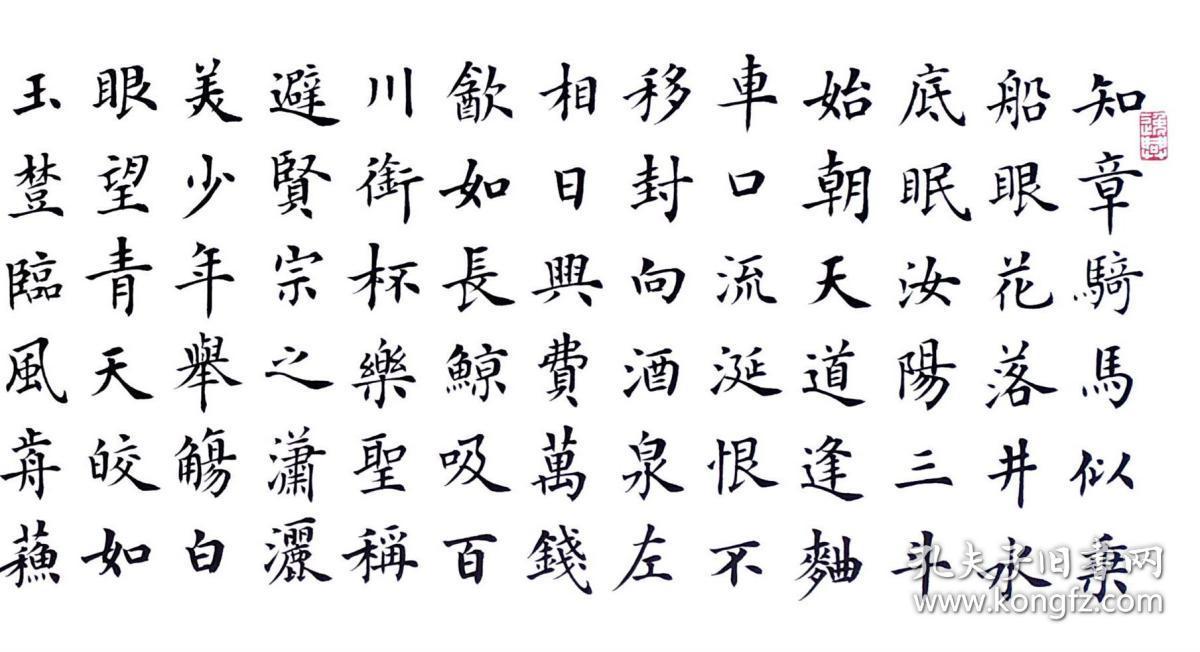 知章騎馬似乘
船眼花落井水
底眠汝陽三斗
始朝天道逢麯
車口流涎恨不
移封向酒泉左
相日興費萬錢
㱃如長鯨吸百
川銜杯樂聖稱
避賢宗之瀟灑
美少年舉觴白
眼望青天皎如
玉臨風歬蘓
孔夫子旧書网
www.kongfz.com